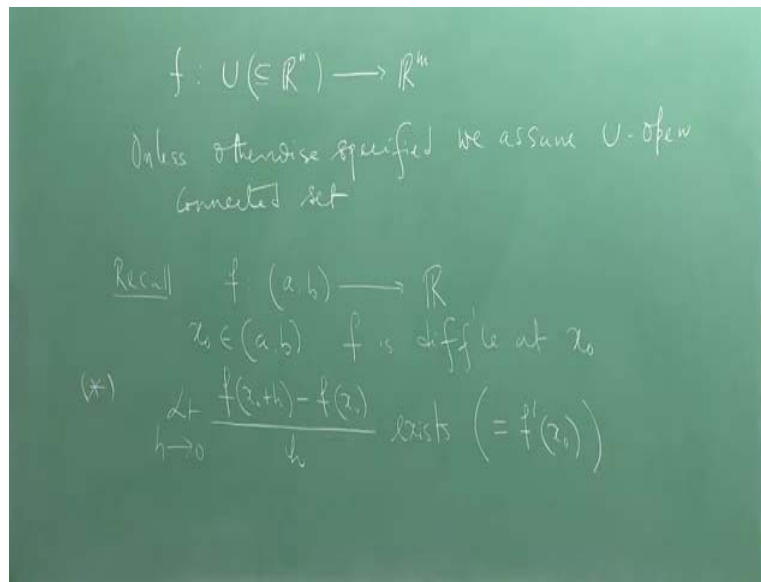 f : U(⊆ ℝⁿ) ⟶ ℝᵐ
Unless otherwise specified we assume U - open
connected set
Recall f : (a, b) ⟶ ℝ
x₀ ∈ (a, b) f is diff'le at x₀
(*) Lt h→0 (f(x₀+h) − f(x₀))/h exists (= f'(x₀))